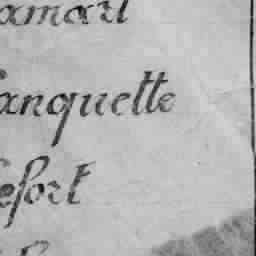 amart
anquette
efort